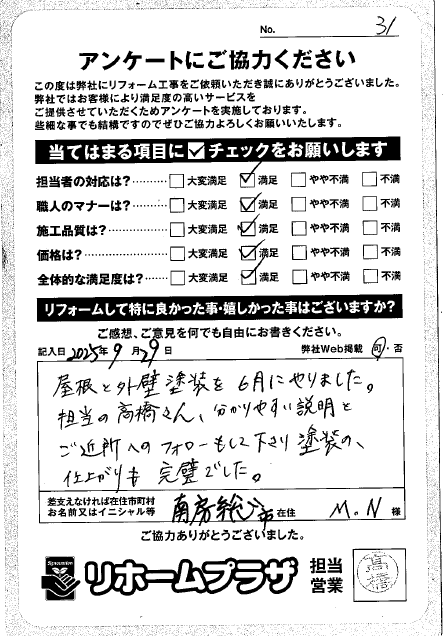 No. 31
アンケートにご協力ください
この度は弊社にリフォーム工事をご依頼いただき誠にありがとうございました。
弊社ではお客様により満足度の高いサービスを
ご提供させていただくためアンケートを実施しております。
些細な事でも結構ですのでぜひご協力よろしくお願いいたします。
当てはまる項目に☑チェックをお願いします
担当者の対応は?………… □大変満足 ☑満足 □やや不満 □不満
職人のマナーは?………… □大変満足 ☑満足 □やや不満 □不満
施工品質は?……………… □大変満足 ☑満足 □やや不満 □不満
価格は?…………………… □大変満足 ☑満足 □やや不満 □不満
全体的な満足度は?……… □大変満足 ☑満足 □やや不満 □不満
リフォームして特に良かった事・嬉しかった事はございますか?
ご感想、ご意見を何でも自由にお書きください。
記入日 2025年 9月 29日 弊社Web掲載 可・否
屋根と外壁塗装を6月にやりました。
担当の高橋さん、分かりやすい説明と
ご近所へのフォローもして下さり塗装の、
仕上がりも完璧でした。
差支えなければ在住市町村
お名前又はイニシャル等 南房総市在住 M.N 様
ご協力ありがとうございました。
リホームプラザ 担当
営業 高橋